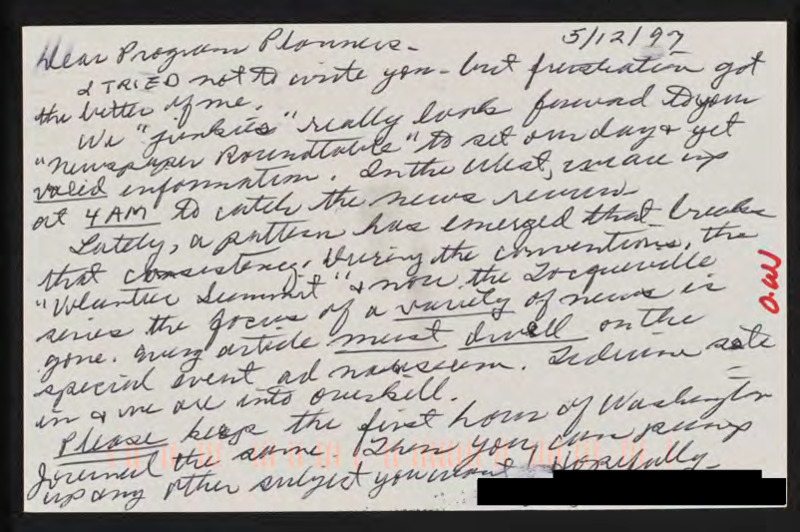 5/12/97
Dear Program Planners-
I TRIED not to write you - but frustration got
the better of me.
We "junkies" really look forward to your
"Newspaper Roundtable" to set our day & get
valid information. In the West, we are up
at 4 AM to catch the news review
Lately, a pattern has emerged that breaks
that consistency. During the conventions, the
"Volunteer Summit" & now the Tocqueville
series the focus of a variety of news is
gone. Every article must dwell on the
special event ad nauseum. Tedium sets
in & we are into overkill.
Please keep the first hour of Washington
Journal the same. Then you can pump
up any other subject you want. Hopefully-